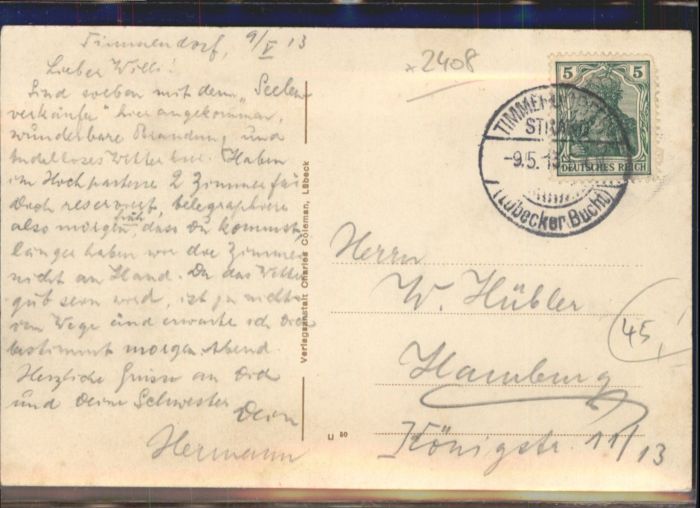 Timmendorf, 9/V 13
Lieber Willi!
Sind soeben mit dem "Seelen
verkäufer" hier angekommen,
wunderbare Brandung und
tadelloses Wetter hier. Haben
im Hochparterre 2 Zimmer für
Dich reserviert, telegraphiere
also morgen früh, dass Du kommst,
länger haben wir die Zimmer
nicht an Hand. Da das Wetter
gut sein wird, ist ja nichts
im Wege und erwarte ich Dich
bestimmt morgen Abend.
Herzliche Grüsse an Dich
und Deine Schwester Dein
Hermann
Verlagsanstalt Charles Coleman, Lübeck
U 50
*2408
5 5
DEUTSCHES REICH
TIMMENDORFER
STRAND
-9.5.13
(Lübecker Bucht)
Herrn
W. Hübler
Hamburg
Königstr. 11/13
45,